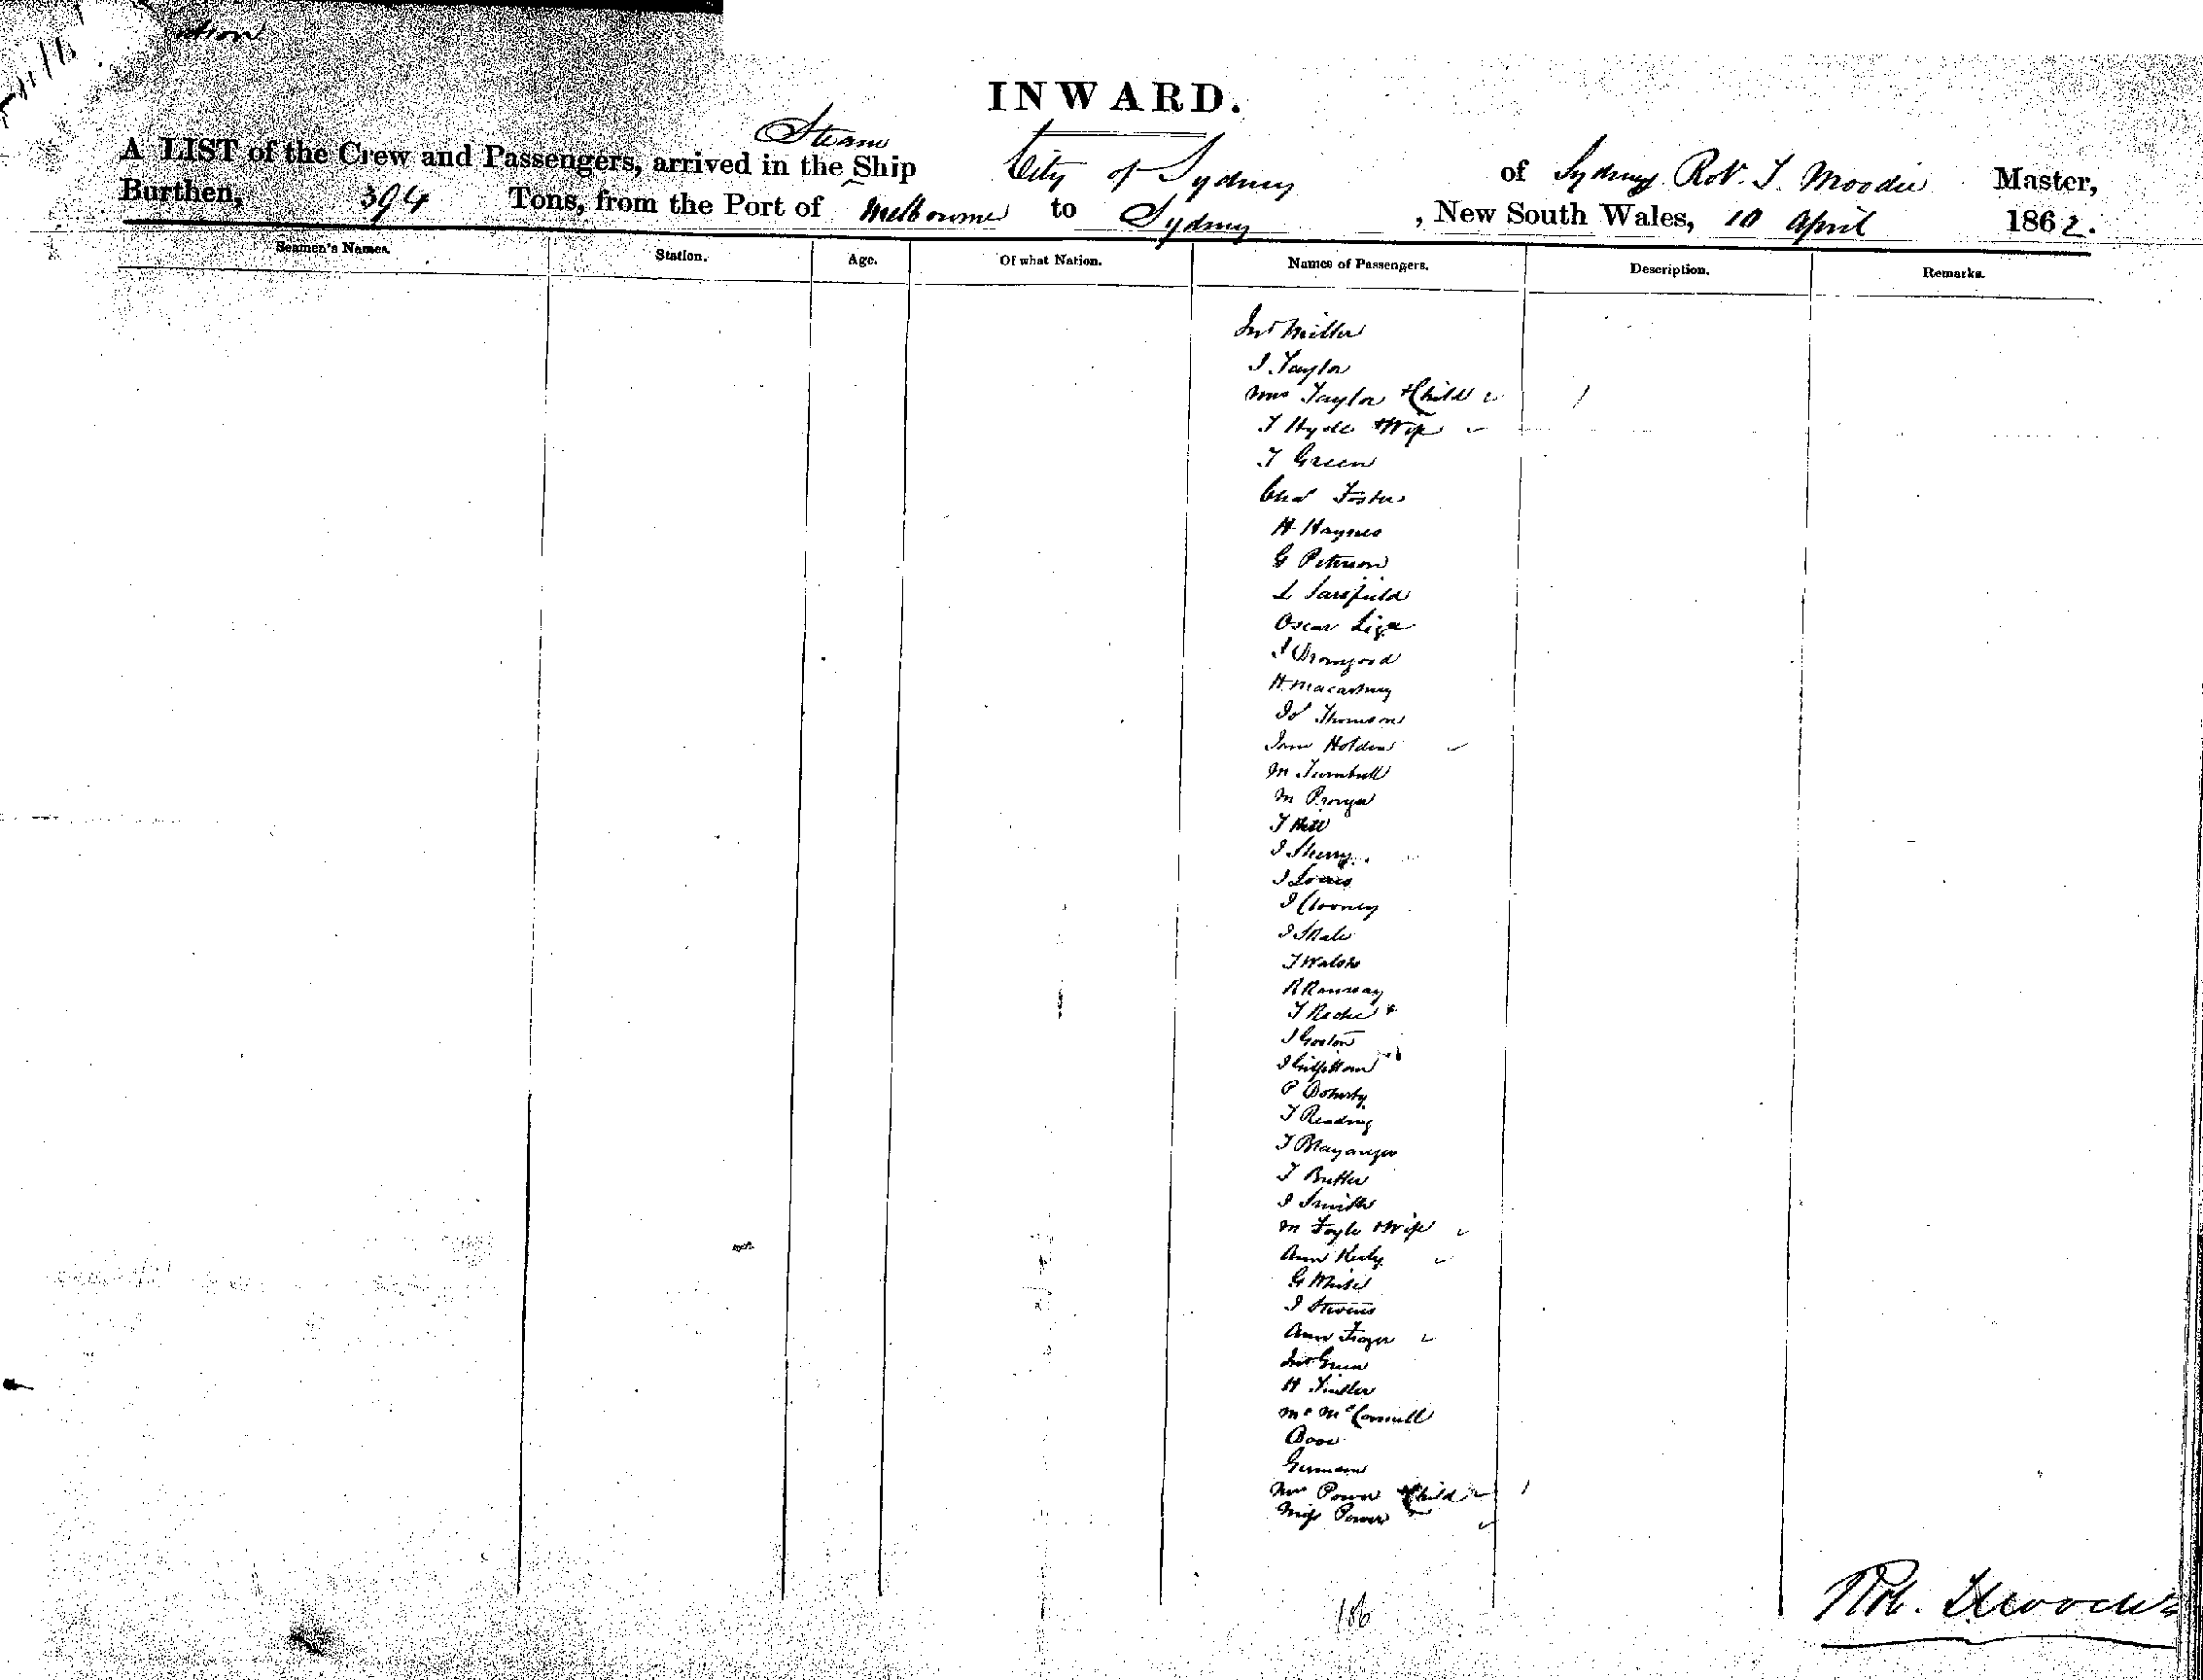 INWARD.
Steam
A LIST of the Crew and Passengers, arrived in the Ship City of Sydney of Sydney Robt. T. Moodie Master,
Burthen, 394 Tons, from the Port of Melbourne to Sydney , New South Wales, 10 April 1862.
Seamen's Names. Station. Age. Of what Nation. Names of Passengers. Description. Remarks.
Jno Miller
J. Taylor
Mrs Taylor + Child
T Hyde + Wife
T Green
Chas Foster
H Haynes
G Peterson
L Sarsfield
Oscar
J
H. Macartney
Jos Thomson
Jane Holden
M Turnbull
M
T Hill
J Sherry
J Louis
J Clooney
J Skale
T Walsh
R Ramsay
T Roche
J Gorton
J
P Doherty
T Reading
T
T Butler
J Smith
M Foyle + Wife
Ann Healy
G White
J Stevens
Ann Frazer
Jno Green
H
Mr McConnell
Bove
Germain
Mrs Power + Child
Miss Power
186
Rob. T. Moodie